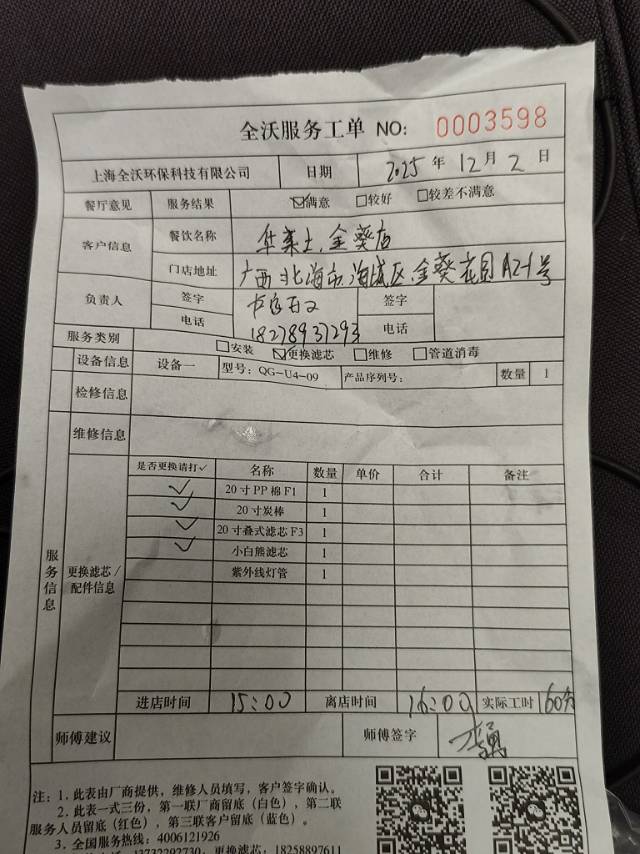 全沃服务工单 NO: 0003598
上海全沃环保科技有限公司 日期 2025年12月2日
餐厅意见 服务结果 ☑满意 □较好 □较差不满意
客户信息 餐饮名称 华莱士金葵店
门店地址 广西北海市海城区金葵花园A2-1号
负责人 签字 签字
电话 18278937293 电话
服务类别 □安装 ☑更换滤芯 □维修 □管道消毒
设备信息 设备一 型号: QG-U4-09 产品序列号: 数量 1
检修信息
维修信息
服务信息
更换滤芯/配件信息
是否更换请打✓ 名称 数量 单价 合计 备注
✓ 20寸PP棉F1 1
✓ 20寸炭棒 1
✓ 20寸叠式滤芯F3 1
✓ 小白熊滤芯 1
紫外线灯管 1
进店时间 15:00 离店时间 16:00 实际工时 60分
师傅建议 师傅签字
注: 1. 此表由厂商提供, 维修人员填写, 客户签字确认。
2. 此表一式三份, 第一联厂商留底(白色), 第二联
服务人员留底(红色), 第三联客户留底(蓝色)。
3. 全国服务热线: 4006121926
13732292730, 更换滤芯: 18258897611